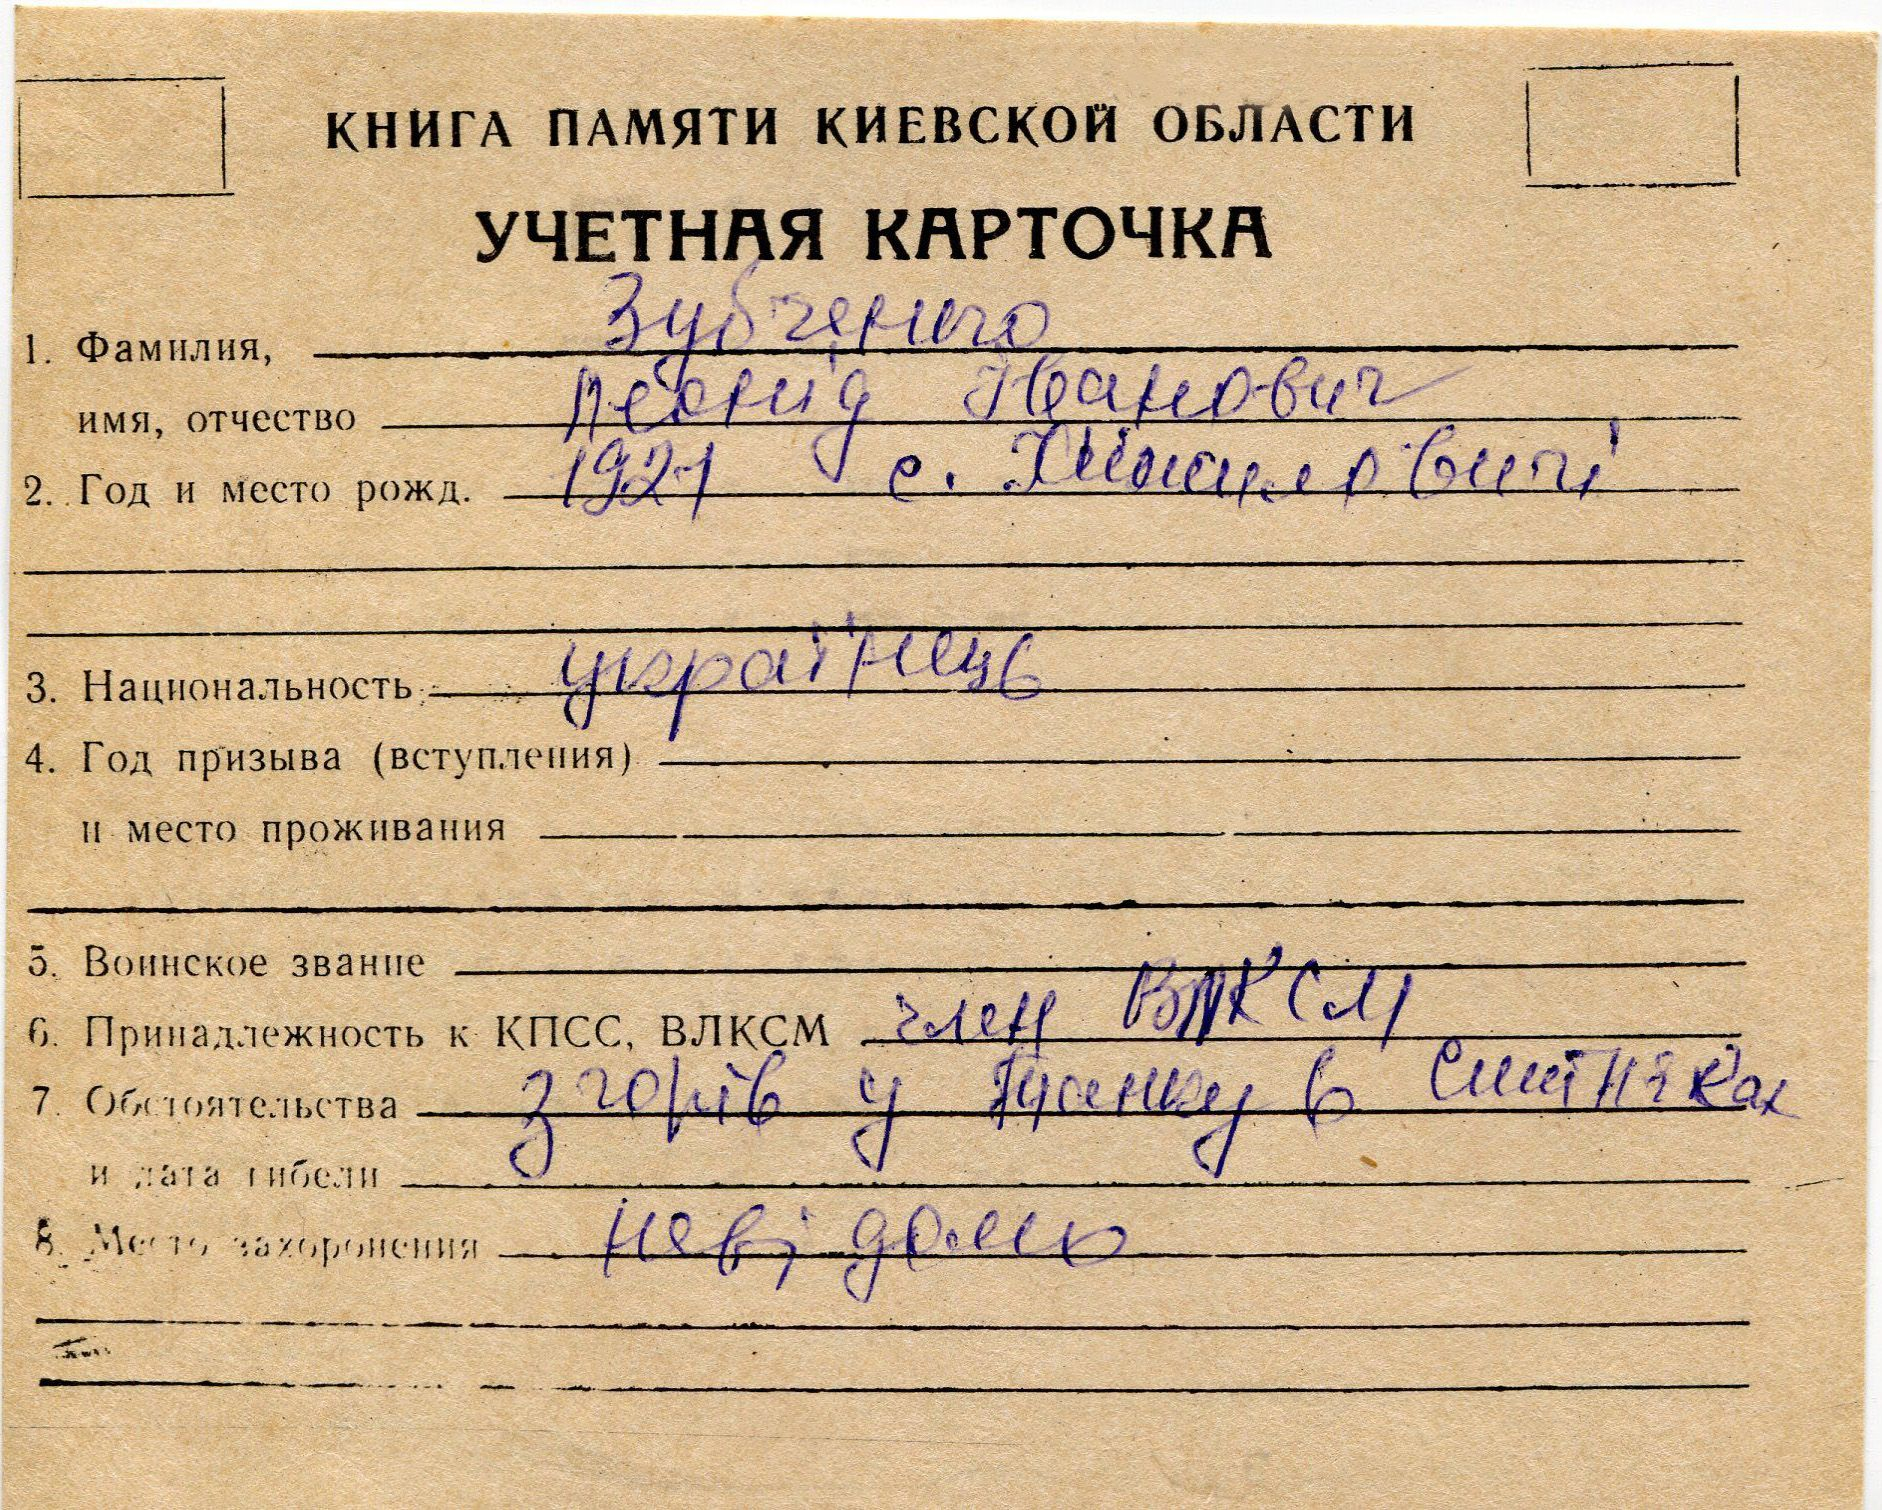 КНИГА ПАМЯТИ КИЕВСКОЙ ОБЛАСТИ
УЧЕТНАЯ КАРТОЧКА
1. Фамилия, Зубченко
имя, отчество Леонід Іванович
2. Год и место рожд. 1921 с.
3. Национальность українець
4. Год призыва (вступления)
и место проживания
5. Воинское звание
6. Принадлежность к КПСС, ВЛКСМ член ВЛКСМ
7. Обстоятельства згорів у танку в Ситняках
и дата гибели
8. Место захоронения невідомо